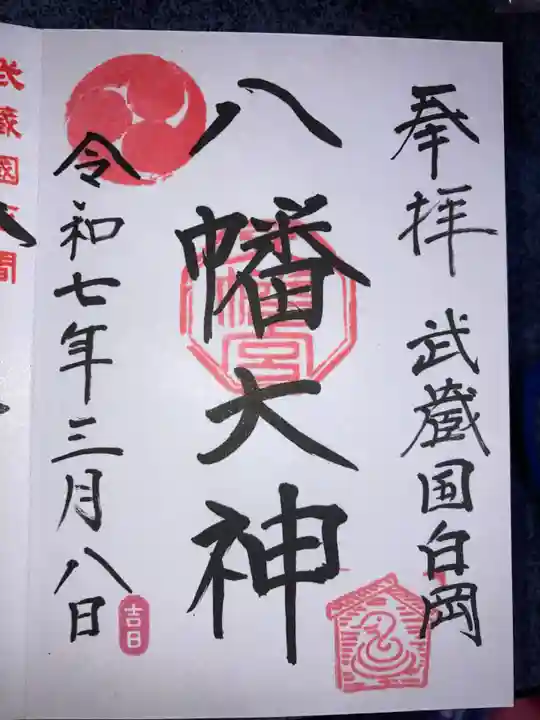 奉拝 武蔵国白岡
八幡大神
八幡宮
令和七年三月八日
吉日
武蔵國
間